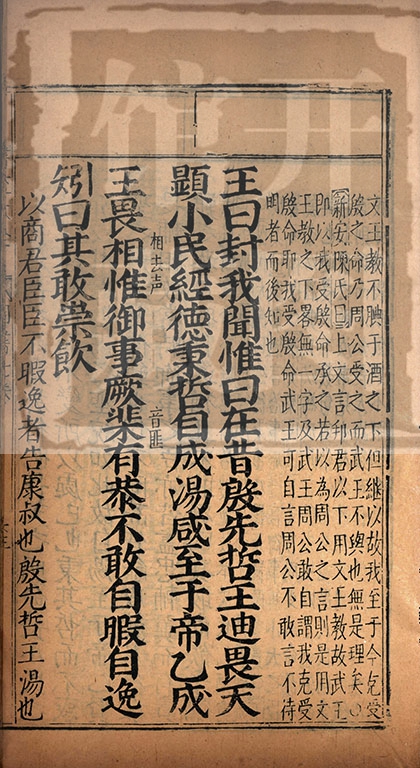 文王教不腆于酒之下但継以故我至于今克受
殷之命乃周公受之而武王不與也無是理矣○
新安陳氏曰上文言邦君以下用文王教故武王
即以我受殷命承之若以為周公之言則是用文
王教之下畧無一字及武王周公敢自謂我克受
殷命耶我受殷命武王可自言周公不敢言不待
明者而後知也
王曰封我聞惟曰在昔殷先哲王迪畏天
顯小民經德秉哲自成湯咸至于帝乙成
王畏相相去声惟御事厥棐音匪有恭不敢自暇自逸
矧曰其敢崇飲
以商君臣臣不暇逸者告康叔也殷先哲王湯也